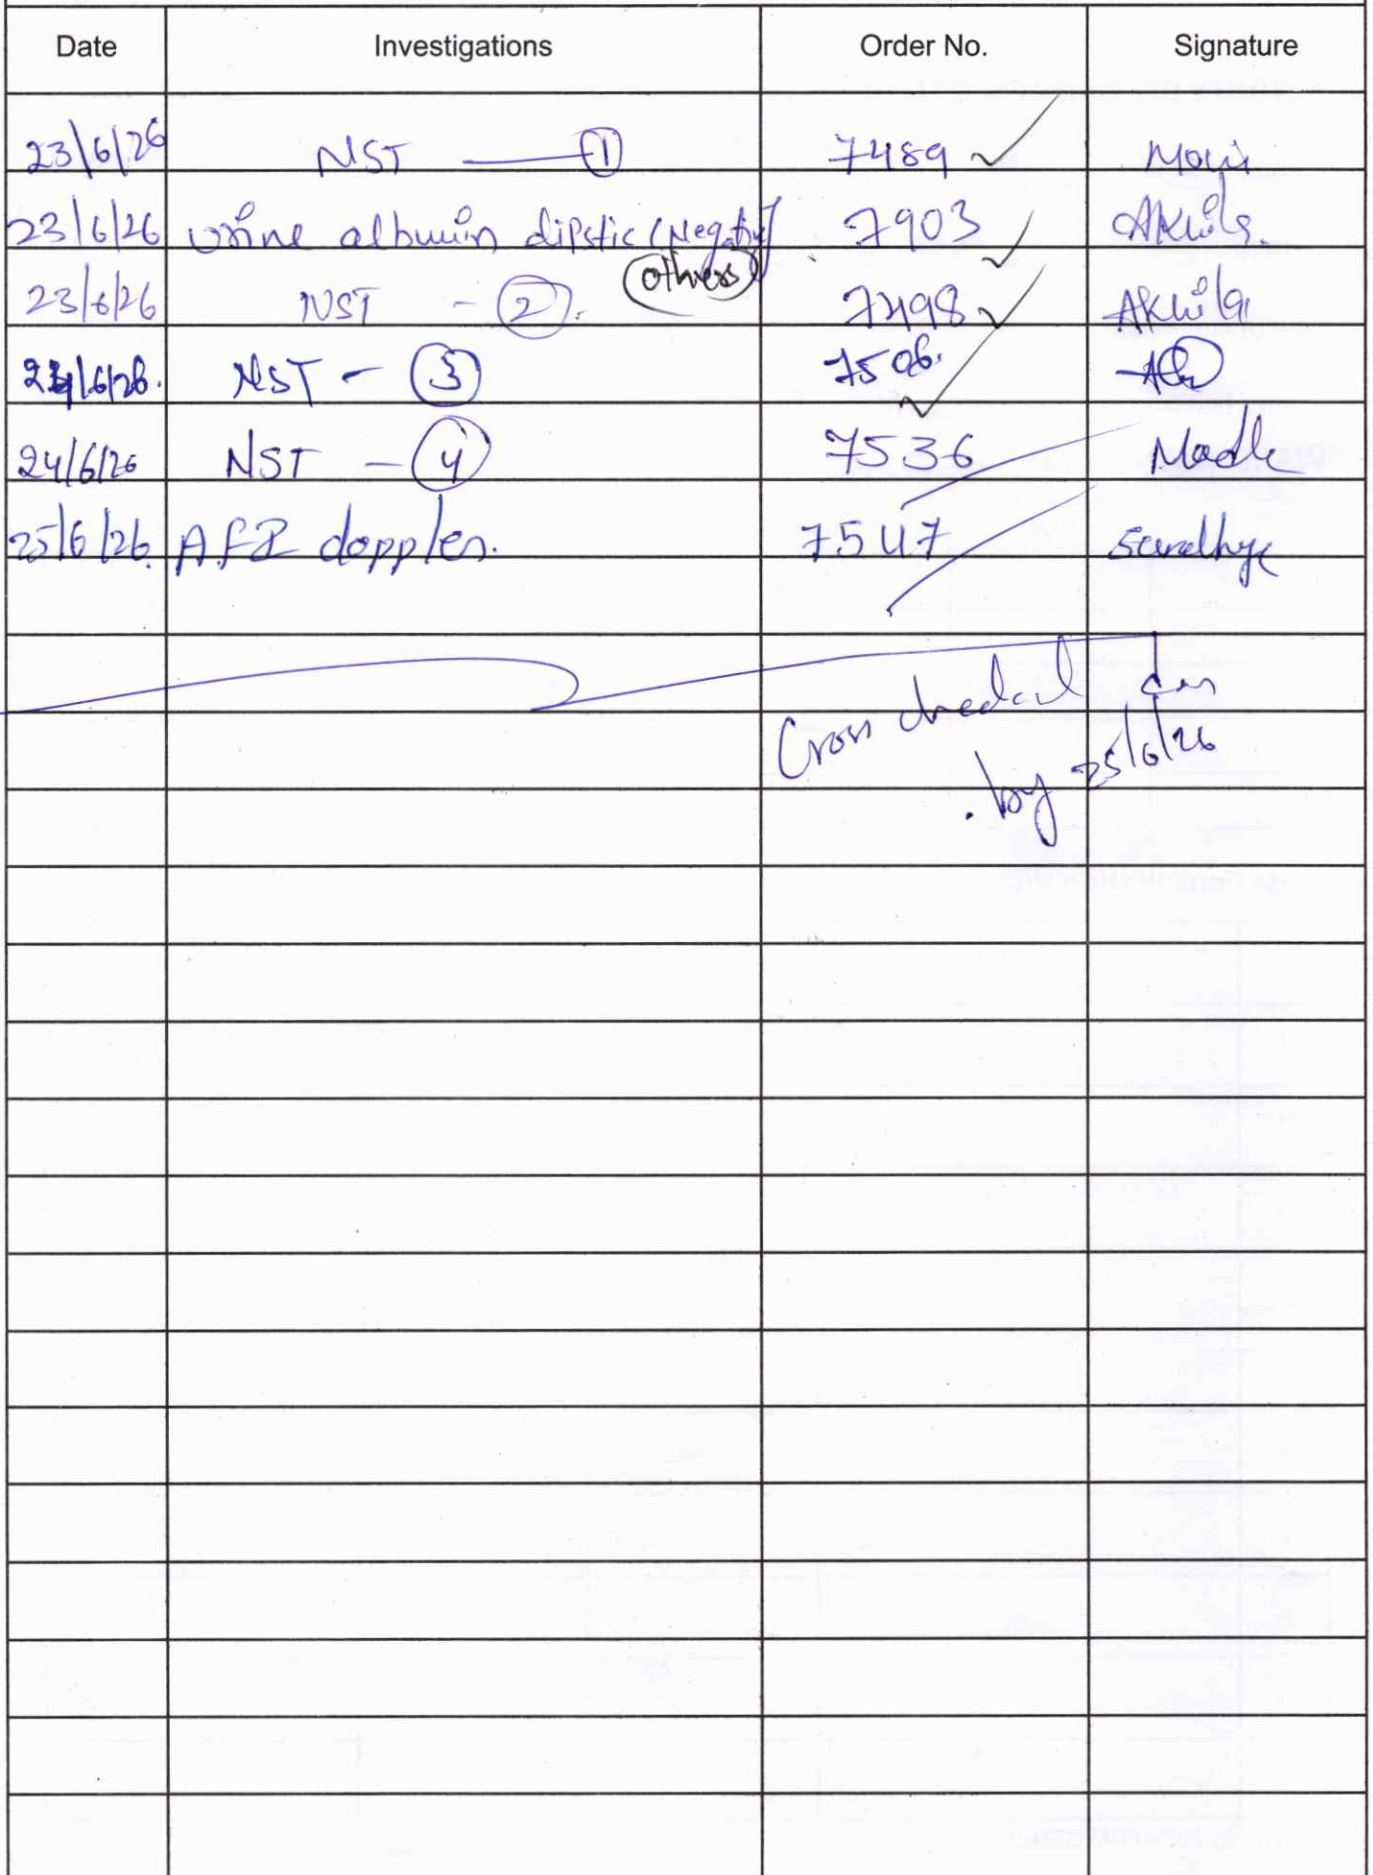 Date Investigations Order No. Signature
23/6/26 NST — ① 7489 ✓
23/6/26 urine albumin dipstic (Negative) 7903 ✓ Akhila.
(others)
23/6/26 NST - ②. 7498 ✓ Akhila
24/6/26. NST - ③ 7506. ✓
24/6/26 NST - ④ 7536
25/6/26. AFI doppler. 7547 Sandhya
Cross checked
by 25/6/26